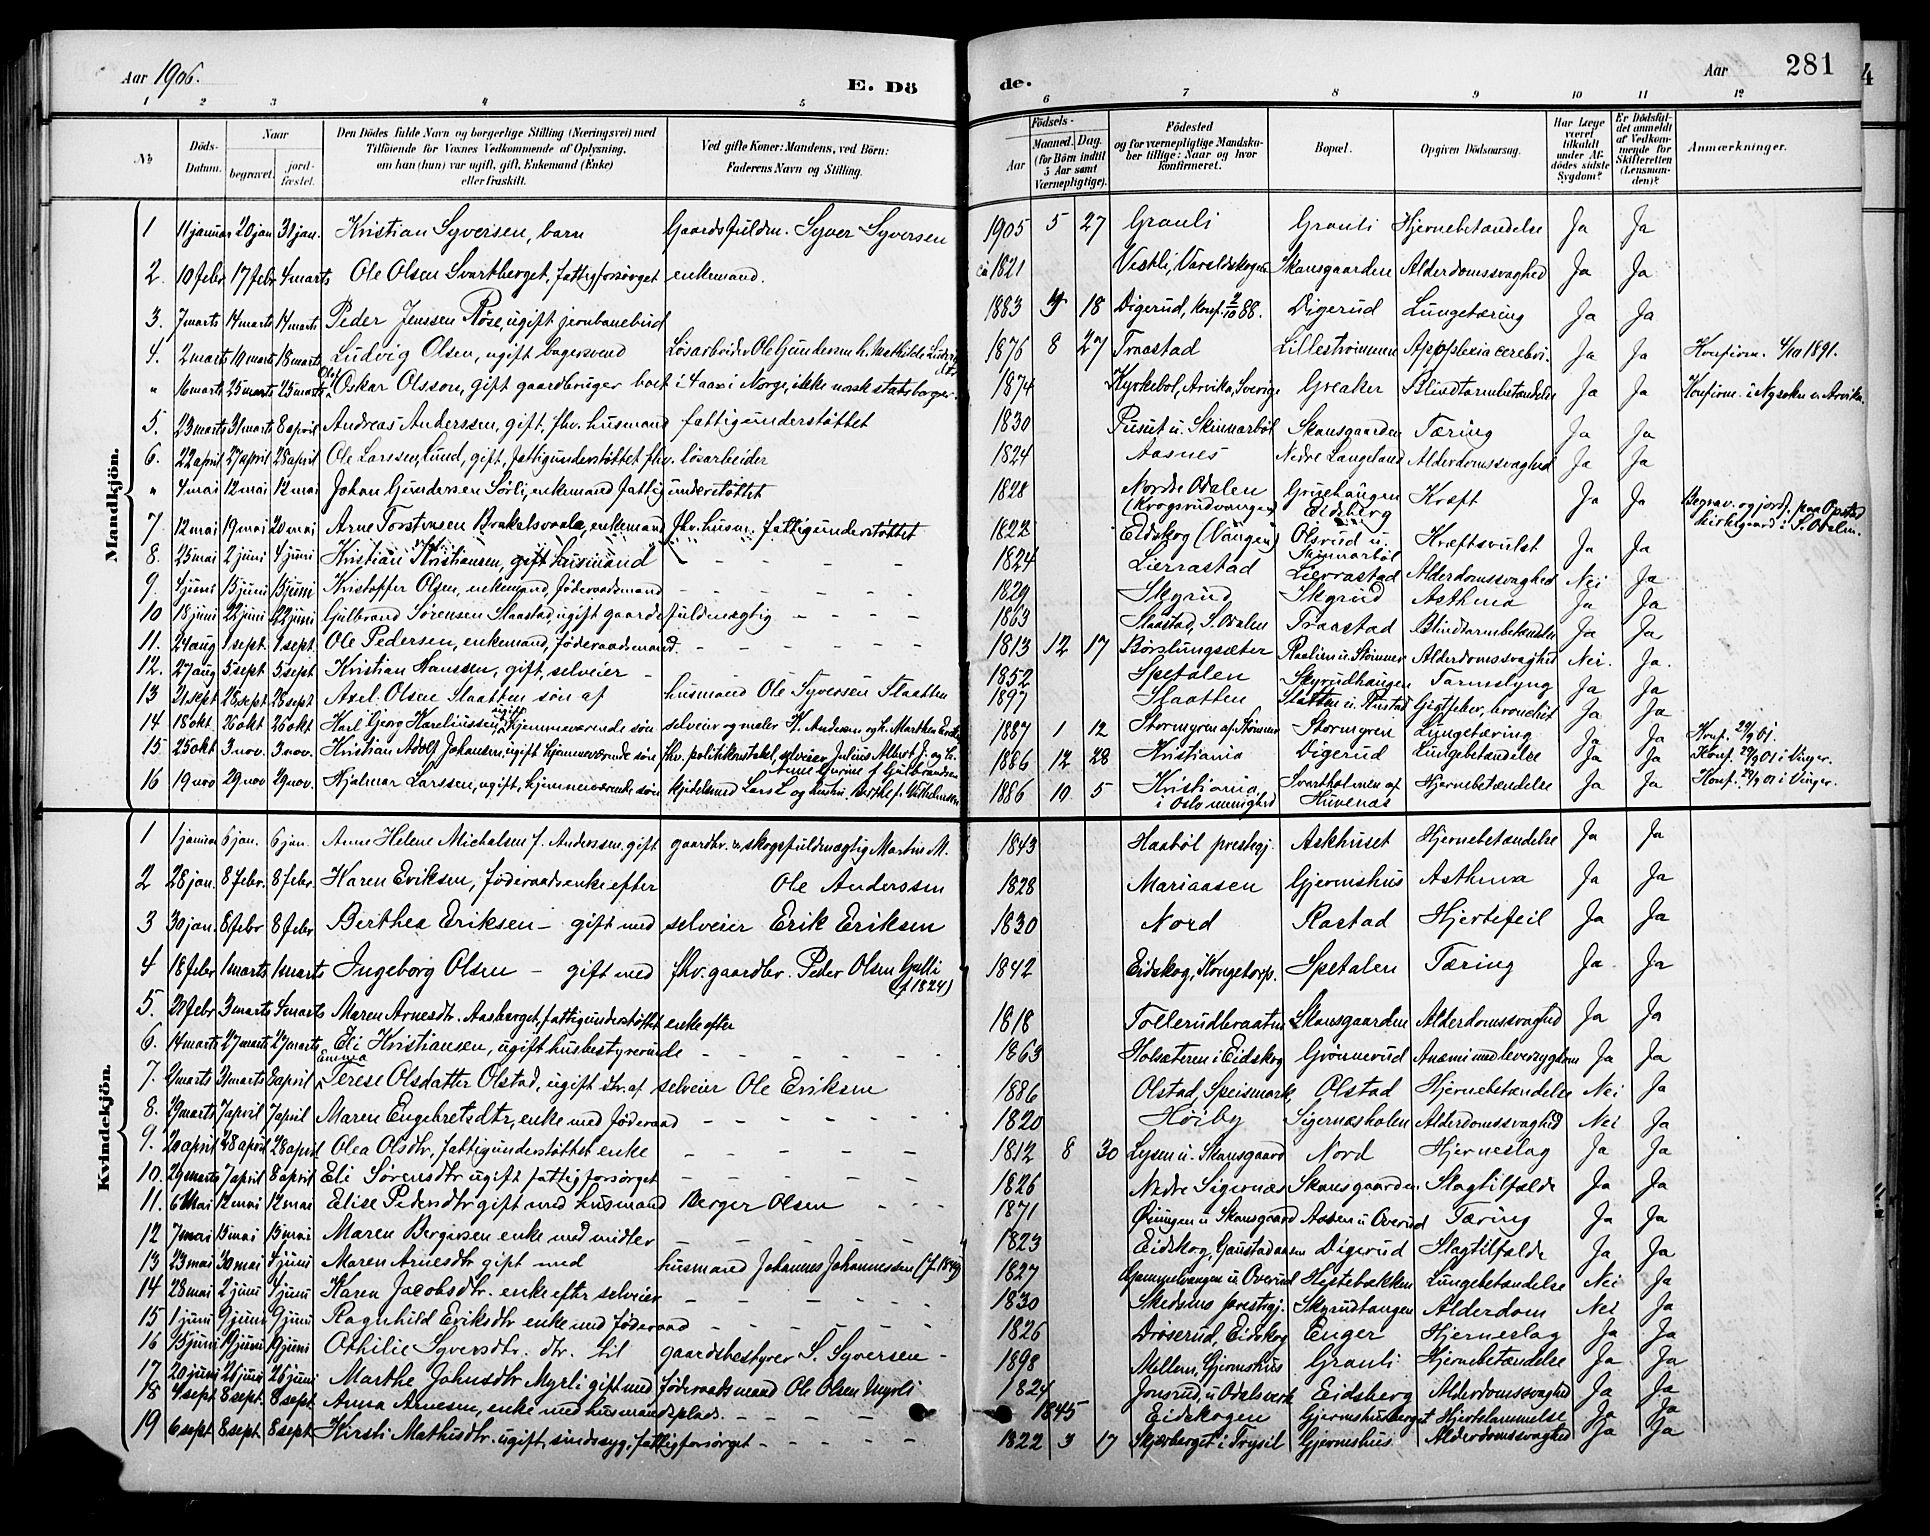 Aar 1906. E. Döde. Aar 281
1 2 3 4 5 6 7 8 9 10 11 12
No
Döds-Datum.
Naar
begravet.
jordfæstet.
Den Dödes fulde Navn og borgerlige Stilling (Næringsvei) med Tilföiende for Voxnes Vedkommende af Oplysning, om han (hun) var ugift, gift, Enkemand (Enke) eller fraskilt.
Ved gifte Koner: Mandens, ved Börn: Faderens Navn og Stilling.
Födsels-
Aar
Maaned. Dag.
(for Börn indtil 5 Aar samt Værnepligtige).
Födested og for værnepligtige Mandskaber tillige: Naar og hvor konfirmeret.
Bopæl.
Opgiven Dödsaarsag.
Har Læge været tilkaldt under Afdödes sidste Sygdom?
Er Dödsfaldet anmeldt af Vedkommende for Skifteretten (Lensmanden)?
Anmerkninger.
Mandkjön.
1 11 januar 20 jan 31 jan. Kristian Syversen, barn Gaardsfuldm. Syver Syversen 1905 5 27 Granli Granli Hjernebetændelse Ja Ja
2. 10 febr 17 febr 4 marts Ole Olsen Svartberget, fattigforsørget enkemand. ca 1821 Vestli, Varaldskogen Skansgaarden Alderdomssvaghed Ja Ja
3. 7 marts 14 marts 14 marts Peder Jenssen Røse, ugift jernbanebud 1883 4 18 Digerud, Konf. 2/10 88. Digerud Lungetæring Ja Ja
4. 2 marts 10 marts 18 marts Ludvig Olsen, ugift bagersvend Løsarbeider Ole Gundersen h. Mathilde Ludvigsdtr 1876 8 27 Traastad Lillestrømmen Apoplexia cerebri. Ja Ja Konfirm. 4/10 1891.
" 16 marts 25 marts 25 marts Olof Oskar Olsson, gift gaardbruger boet i 4 aar i Norge, ikke norsk statsborger. 1874 Kyrkebol, Arvika, Sverige Greaker Blindtarmbetændelse Ja Ja Konfirm. i Nysokn v. Arvika.
5. 23 marts 31 marts 8 april Andreas Anderssen, gift, fhv. husmand fattigunderstøttet 1830 Pusut u. Skinnarbøl Skansgaarden Tæring Ja Ja
6. 22 april 27 april 28 april Ole Larssen, Lund, gift, fattigunderstøttet fhv. løsarbeider 1824 Aasnes Nedre Langeland Alderdomssvaghed Ja Ja
" 4 mai 12 mai 12 mai Johan Gundersen Sørli, enkemand fattigunderstøttet 1828 Nordre Odalen (Krogsrudvangen) Gruehaugen Eidsberg Kræft Ja Ja Begrav. og jordf. paa Opstad Kirkegaard i S. Odalen.
7. 12 mai 19 mai 20 mai Arne Torstensen Brakalsvaala, enkemand fhv. husm. fattigunderstøttet 1822 Eidskog (Vangen) Olsrud u. Skinnarbøl Kræftsvulst Ja Ja
8. 25 mai 2 juni 4 juni Kristian Kristiansen, gift husmand – – – – 1824 Lierrastad Lierrastad Alderdomssvaghed Nei Ja
9. 4 juni 15 juni 15 juni Kristoffer Olsen, enkemand, føderaadsmand – – – – 1829 Skyrud Skyrud Asthma Ja Ja
10 18 juni 22 juni 22 juni Gulbrand Sørensen Slaastad, ugift gaardsfuldmægtig – – – 1863 Slaastad, S. Odalen Traastad Blindtarmbetændelse Ja Ja
11. 24 aug 1 sept. 1 sept. Ole Pedersen, enkemand, føderaadsmand. – – – – 1813 12 17 Børslungsæter Raalien u. Stømner Alderdomssvaghed Nei. Ja.
12. 27 aug 5 sept. 5 sept Kristian Hanssen, gift, selveier – – – – 1852 Spetalen Skyrudhaugen Tarmslyng Ja Ja
13 21 sept 28 sept 28 sept Axel Olsen Slaatten søn af husmand Ole Syversen Slaatten 1897 Slaatten Slaatten u. Rustad Gigtfeber, bronchit Ja Ja
14 18 okt. 26 okt 26 okt Karl Georg Kareliussen ugift, hjemmeværende søn selveier og maler K. Andersen og h. Marthea 1887 1 12 Stormyren af Stømner Stormyren Lungetæring Ja Ja Konf. 29/9 01.
15 25 okt 3. nov. 3. nov. Kristian Adolf Johansen, ugift hjemmeværende søn fhv. politikonstabel, selveier Julius Albert J. og h. Anne Gurine f. Gulbrandsen 1886 12 28 Kristiania Digerud Lungebetændelse Ja Ja Konf. 29/9 01 i Vinger.
16 19 nov 29 nov 29 nov. Hjalmar Larssen, ugift, hjemmeværende søn kjedelsmed Lars L. og hustru Berthe f. Vilhelmsen 1886 10 5 Kristiania, i Oslo menighed Svartholmen af Huvenæs Hjernebetændelse Ja Ja Konf. 29/9 01 i Vinger.
Kvindekjön.
1 1 januar 6 jan. 6 jan. Anne Helene Michalsen f. Anderssen, gift gaardbr. & skogsfuldmægtig Martin M. 1843 Haabøl prestegj. Askhuset Hjernebetændelse Ja Ja
2 28 jan. 8 febr. 8 febr. Karen Eriksen, føderaadsenke efter Ole Anderssen 1828 Mariaasen Gjermshus Asthma Ja Ja
3 30 jan. 8 febr 8 febr Berthea Eriksen – gift med selveier Erik Eriksen 1830 Nord Rastad Hjertefeil Ja Ja
4 18 febr 1 marts 1 marts Ingeborg Olsen – gift med fhv. gaardbr. Peder Olsen Galli (f. 1824) 1842 Eidskog, Kongetorp. Spetalen Tæring Ja Ja
5. 21 febr 3 marts 4 marts Maren Arnesdtr. Aasberget, fattigunderstøttet enke efter 1818 Tollerudbraaten Skansgaarden Alderdomssvaghed Ja Ja
6. 14 marts 27 marts 27 marts Eli Kristiansen, ugift husbestyrerinde – – – – 1863 Holsæteren i Eidskog Grønnerud Anæmi med leversygdom Ja Ja
7. 21 marts 31 marts 8 april Emma Terese Olsdatter Olstad, ugift dtr. af selveier Ole Eriksen 1886 Olstad, Speismark Olstad Hjernebetændelse Nei Ja
8. 29 marts 7 april 7 april Maren Engebretsdtr, enke med føderaad – – – – 1820 Høiby Sigernæsholen Alderdomssvaghed Nei Ja
9. 20 april 28 april 28 april Olea Olsdtr, fattigunderstøttet enke – – – – 1812 8 30 Lysen u. Skansgaard Nord Hjerneslag Ja Ja
10. 29 marts 7 april 8 april Eli Sørensdtr ugift fattigforsørget – – – – 1826 Nedre Sigernæs Skansgaarden Slagtilfælde Ja Ja
11. 6 mai 12 mai 12 mai Elise Pedersdtr gift med husmand Berger Olsen – – 1871 Øiungen u Skansgaard Aasen u Overud Tæring Ja Ja
12 7 mai 15 mai 15 mai Maren Bergersen enke med midler – – – – 1823 Eidskog, Gaustadaasen Digerud Slagtilfælde Ja Ja
13 23 mai 30 mai 4 juni Maren Arnesdtr gift med husmand Johannes Johannessen (f. 1849) 1827 Gammelvangen u Overud Hestebækken Lungebetændelse Nei Ja
14 28 mai 2 juni 4 juni Karen Jacobsdtr. enke efter selveier – – – – 1830 Skedsmo prestegj. Skyrudtangen Alderdom Nei Ja
15 1 juni 9 juni 9 juni Ragnhild Eriksdtr enke med føderaad – – – – 1826 Drøserud, Eidskog Enger Hjerneslag Ja Ja
16 15 juni 19 juni 19 juni Othilie Syversdtr. dtr. til gaardsbestyrer S. Syversen – 1898 Mellem, Gjermshus Granli Hjernebetændelse Ja Ja
17 20 juni 26 juni 26 juni Marthe Johnsdtr Myrli gift med føderaadsmand Ole Olsen Myrli 1824 Jonsrud, u Odalsverk Eidsberg Alderdomssvaghed Ja Ja
18 4 sept 8 sept. 8 sept. Anna Arnesen, enke med husmandsplads. – – – – 1845 Eidskogen Gjermshusberget Hjertelammelse Ja Ja
19 6 sept 8 sept. 8 sept. Kirsti Mathisdtr. ugift, sindssyg, fattigforsørget – – – – 1822 3 17 Skjærberget i Trysil Gjermshus Alderdomssvaghed Ja Ja